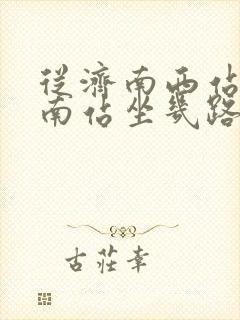 從濟南西佔
南佔坐幾路
古莊幸